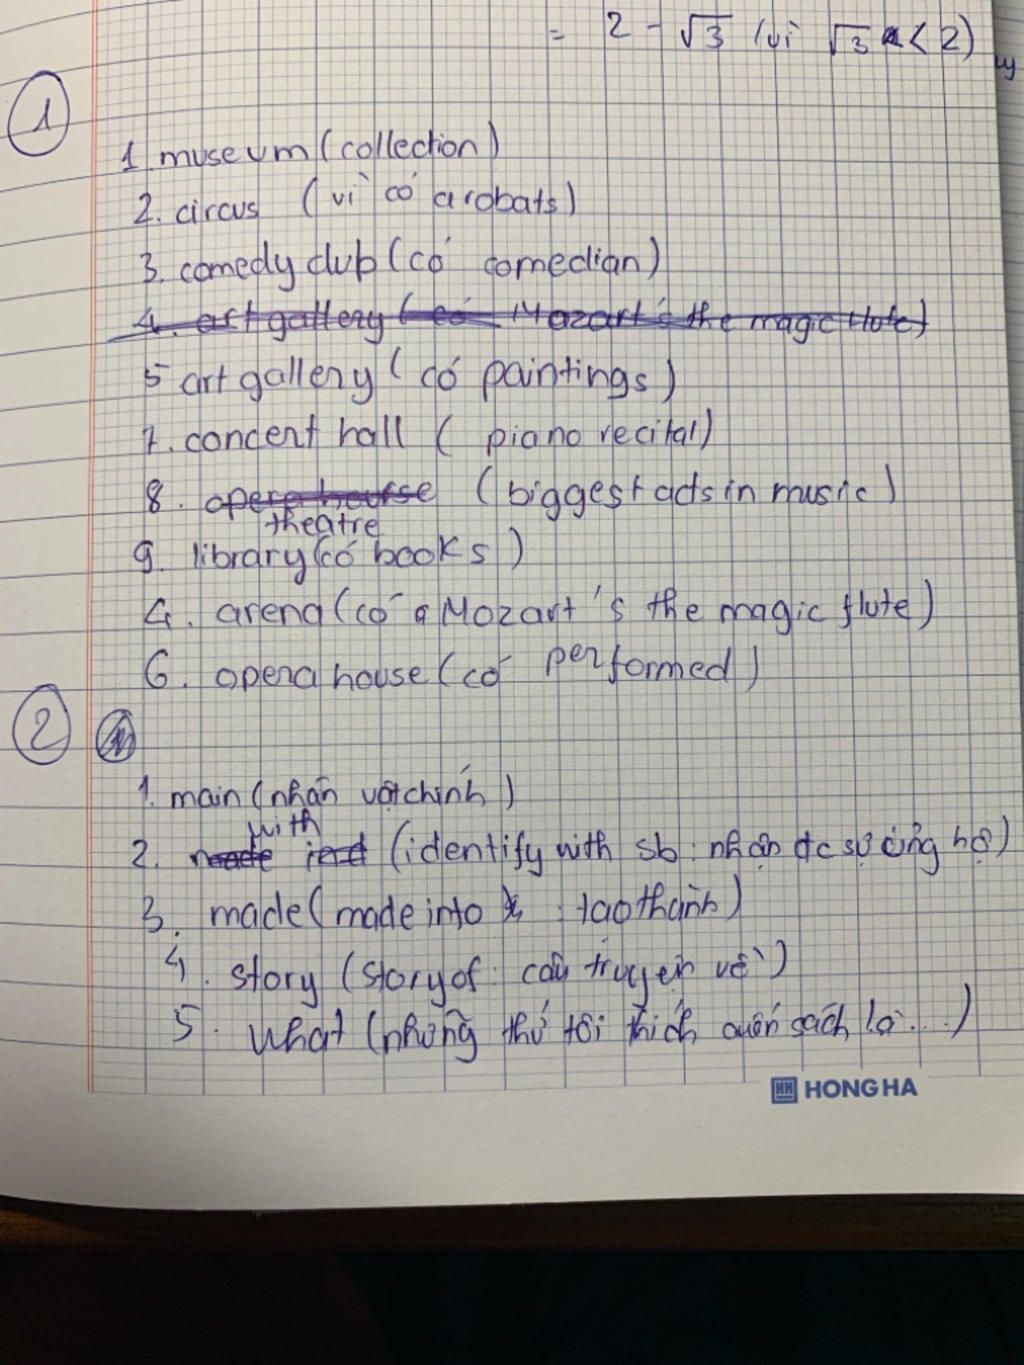 = 2 - √3 (vì √3 < 2)
1
1. museum (collection)
2. circus (vì có arobats)
3. comedy club (có comedian)
4. art gallery (có Mozart's the magic flute)
5 art gallery (có paintings)
7. concert hall ( piano recital)
8. opera house (biggest acts in music)
theatre
9. library (có books)
4. arena (có a Mozart's the magic flute)
6. opera house (có performed)
2
1. main (nhân vật chính)
with
2. made (identify with sb: nhận đc sự ủng hộ)
3. made (made into : tạo thành)
4. story (story of: câu truyện về)
5. What (những thứ tôi thích cuốn sách là...)
HH HONG HA